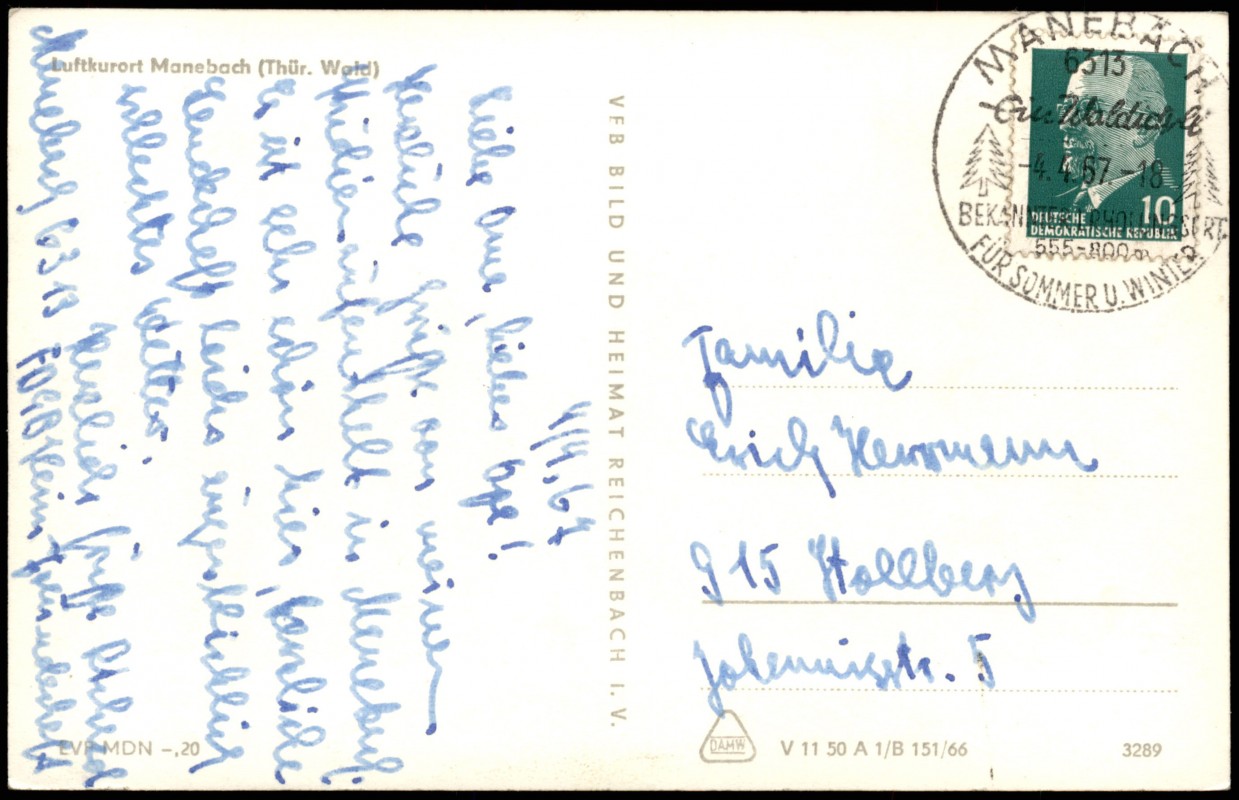 Luftkurort Manebach (Thür. Wald)
4/4.67
Liebe Oma, lieber Opa!
Herzliche Grüße von meinem
Studienaufenthalt in Manebach.
Es ist sehr schön hier, herrliche
Landschaft, leider augenblicklich
schlechtes Wetter.
Herzliche Grüße
Manebach 6313 FDGB Heim
VEB BILD UND HEIMAT REICHENBACH I. V.
EVP MDN -,20
MANEBACH
6313
Ein Waldidyll
-4.4.67.-18
BEKANNTER ERHOLUNGSORT
555-800m
FÜR SOMMER U. WINTER
10
DEUTSCHE
DEMOKRATISCHE REPUBLIK
Familie
Erich Herrmann
915 Stollberg
Johannisstr. 5
DAMW
V 11 50 A 1/B 151/66
3289